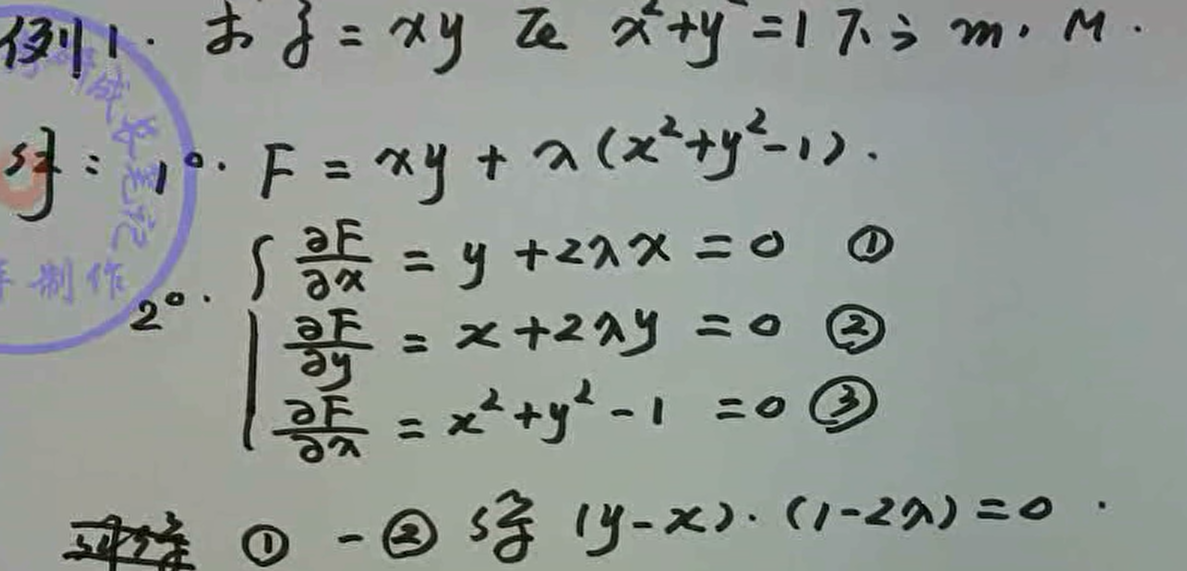 例1. 求 z = xy 在 x²+y²=1 下之 m. M.
解: 1°. F = xy + λ(x²+y²-1).
2°. { ∂F/∂x = y + 2λx = 0 ①
∂F/∂y = x + 2λy = 0 ②
∂F/∂λ = x² + y² - 1 = 0 ③
① - ② 得 (y-x)·(1-2λ) = 0.
制作